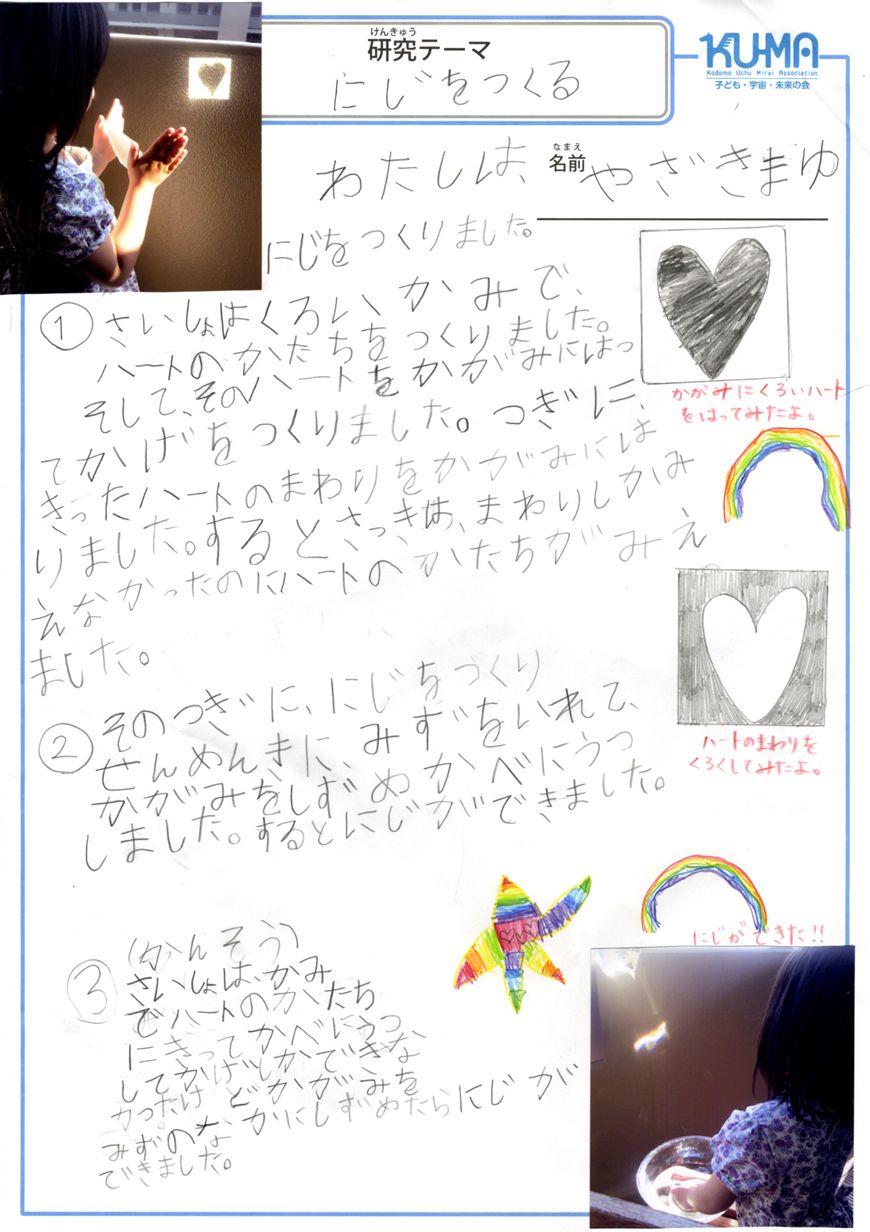 けんきゅう
研究テーマ
にじをつくる
KU-MA
Kodomo Uchu Mirai Association
子ども・宇宙・未来の会
わたしは、
なまえ
名前
やざきまゆ
にじをつくりました。
① さいしょはくろい、かみで、
ハートのかたちをつくりました。
そして、そのハートをかがみにはっ
てかげをつくりました。つぎに、
きったハートのまわりをかがみには
りました。するとさっきは、まわりしかみ
えなかったのにハートのかたちがみえ
ました。
かがみにくろいハート
をはってみたよ。
ハートのまわりを
くろくしてみたよ。
② そのつぎに、にじをつくり
せんめんきに、みずをいれて、
かがみをしずめかべにうつ
しました。するとにじができました。
にじができた!!
③ (かんそう)
さいしょは、かみ
でハートのかたち
にきってかべにうつ
してかげしかできな
かったけどかがみを
みずのなかにしずめたらにじが
できました。